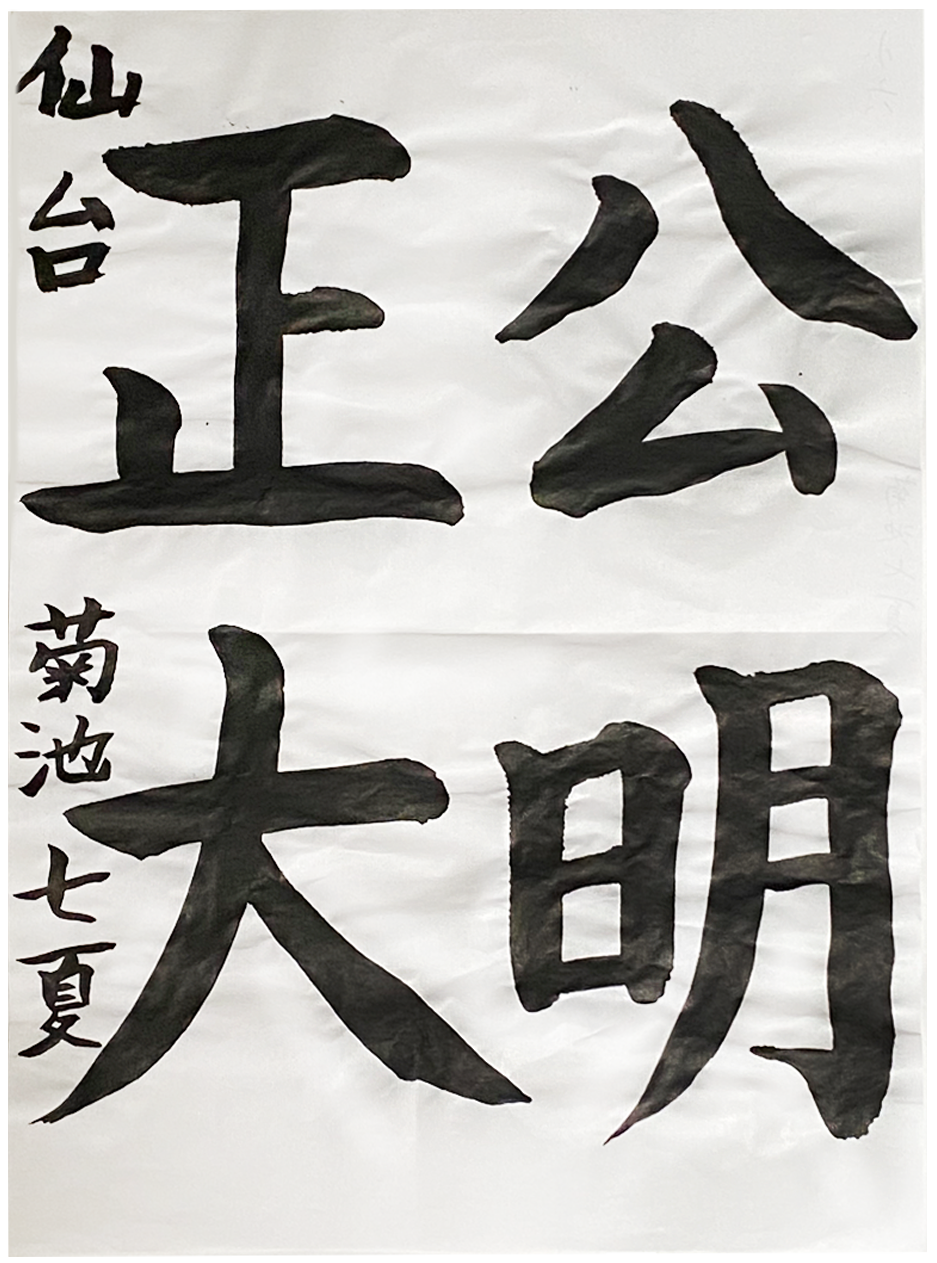 公明
正大
仙台 菊池七夏